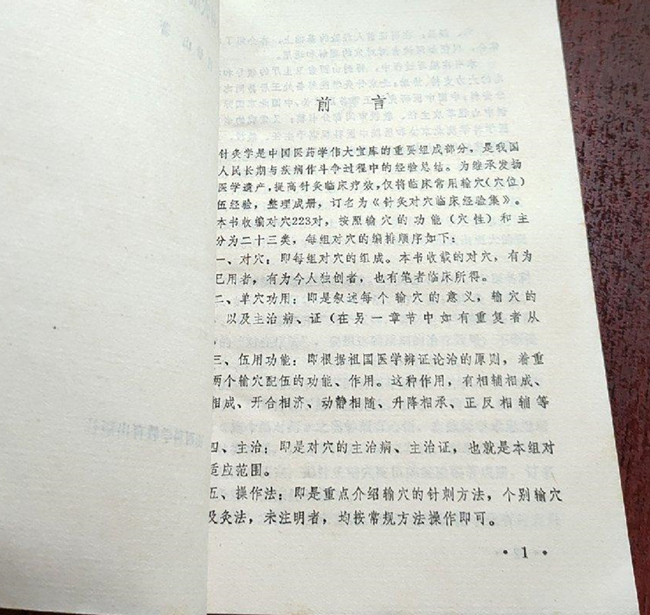 前 言
针灸学是中国医药学伟大宝库的重要组成部分，是我国
人民长期与疾病作斗争过程中的经验总结。为继承发扬
医学遗产，提高针灸临床疗效，仅将临床常用输穴（穴位）
伍经验，整理成册，订名为《针灸对穴临床经验集》。
本书收编对穴223对，按照输穴的功能（穴性）和主
分为二十三类，每组对穴的编排顺序如下：
一、对穴：即每组对穴的组成。本书收载的对穴，有为
已用者，有为今人独创者，也有笔者临床所得。
二、单穴功用：即是叙述每个输穴的意义，输穴的
，以及主治病、证（在另一章节中如有重复者从
三、伍用功能：即根据祖国医学辨证论治的原则，着重
两个输穴配伍的功能、作用。这种作用，有相辅相成、
相成、开合相济、动静相随、升降相承、正反相辅等
四、主治：即是对穴的主治病、主治证，也就是本组对
适应范围。
五、操作法：即是重点介绍输穴的针刺方法，个别输穴
及灸法，未注明者，均按常规方法操作即可。
· 1 ·